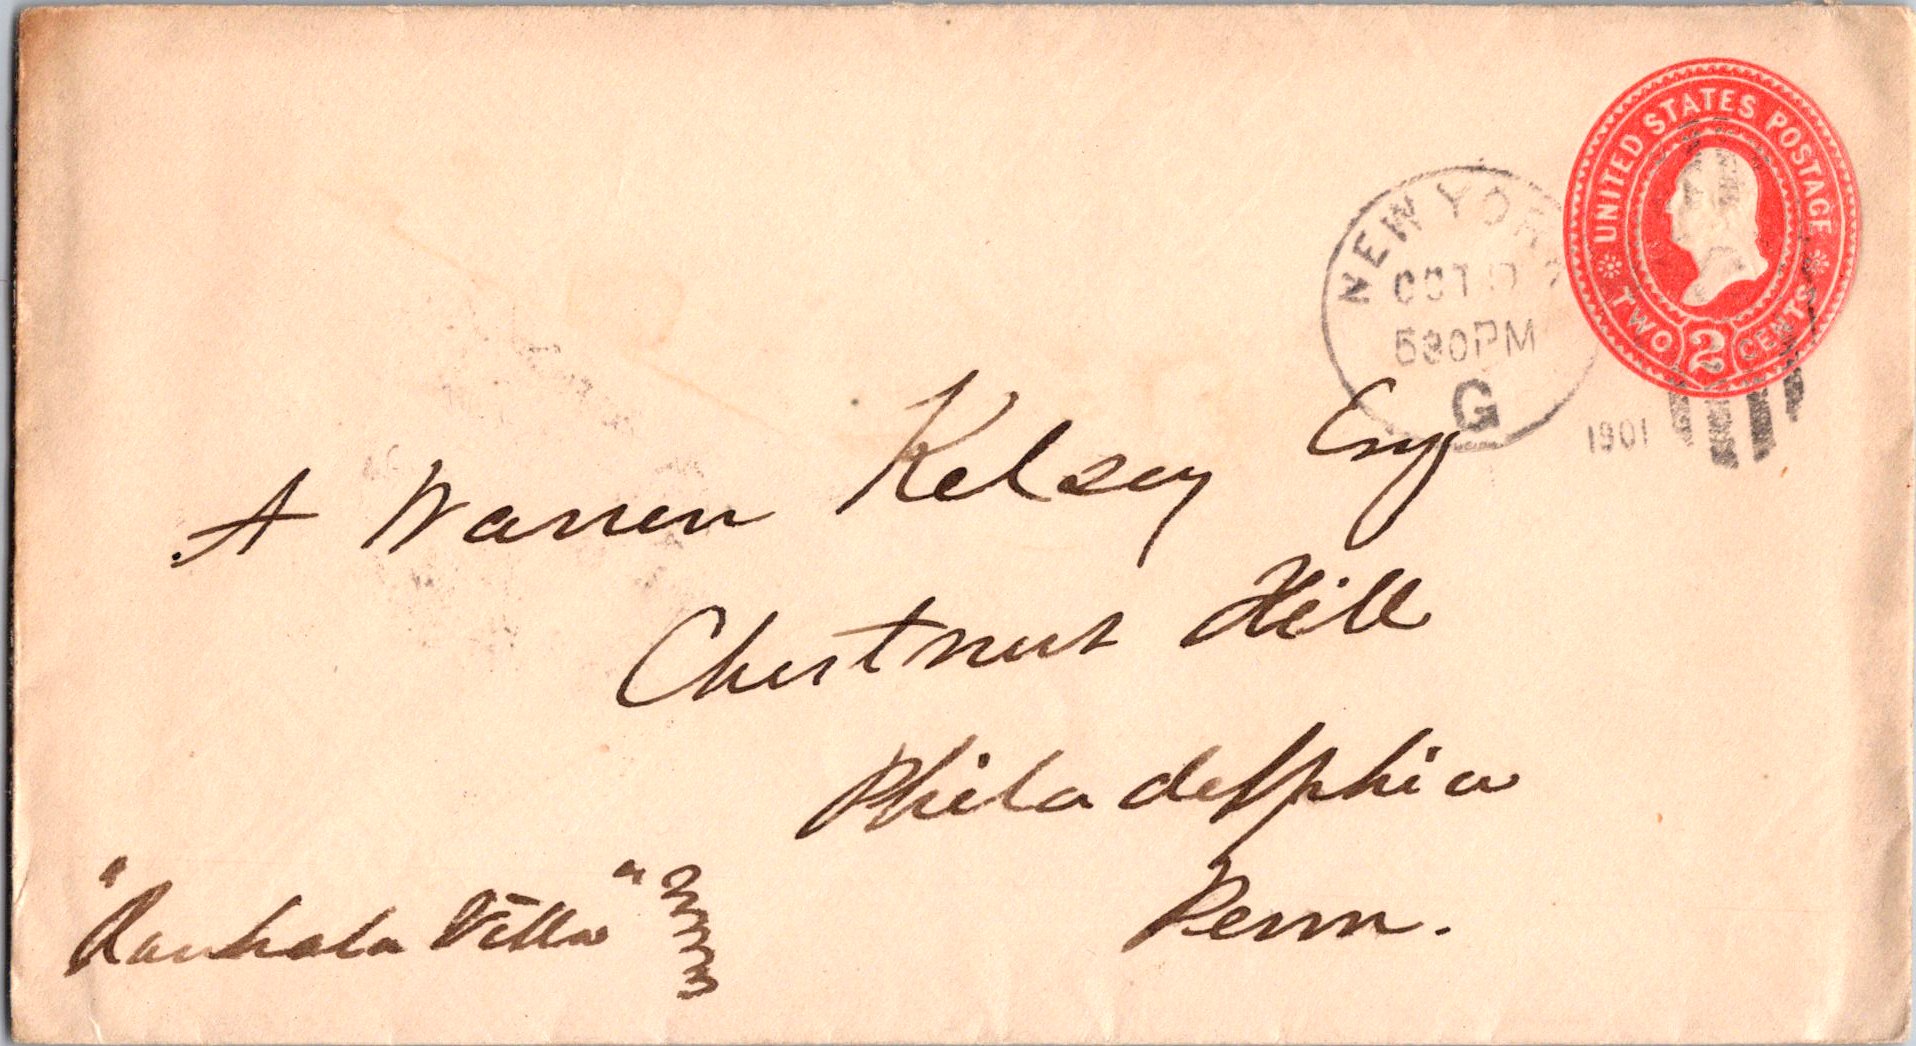 UNITED STATES POSTAGE
TWO 2 CENTS
NEW YORK
OCT
530PM
G
1901
A Warren Kelsey Esq
Chestnut Hill
Philadelphia
Penn.
Villa"